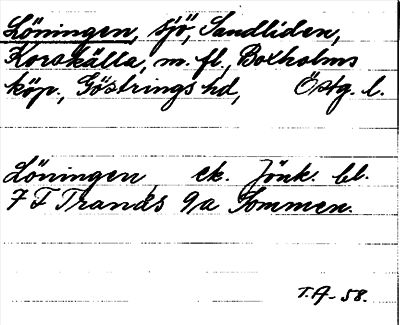 Löningen, sjö, Sandliden,
Korskälla, m. fl., Boxholms
köp., Göstrings hd, Östg. l.
Löningen, ek. Jönk. bl.
7 F Tranås 9a Sommen.
T.A-58.